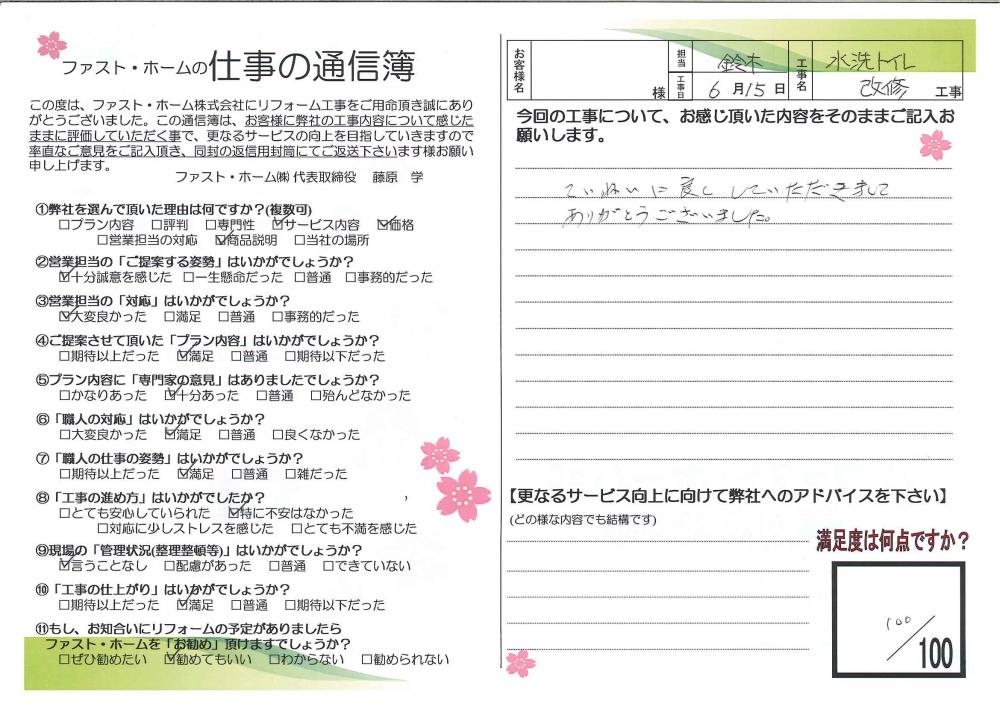 ファスト・ホームの仕事の通信簿
この度は、ファスト・ホーム株式会社にリフォーム工事をご用命頂き誠にあり
がとうございました。この通信簿は、お客様に弊社の工事内容について感じた
ままに評価していただく事で、更なるサービスの向上を目指していきますので
率直なご意見をご記入頂き、同封の返信用封筒にてご返送下さいます様お願い
申し上げます。
ファスト・ホーム㈱ 代表取締役　藤原　学
①弊社を選んで頂いた理由は何ですか？(複数可)
□プラン内容 □評判 □専門性 ☑サービス内容 ☑価格
□営業担当の対応 ☑商品説明 □当社の場所
②営業担当の「ご提案する姿勢」はいかがでしょうか？
☑十分誠意を感じた □一生懸命だった □普通 □事務的だった
③営業担当の「対応」はいかがでしょうか？
☑大変良かった □満足 □普通 □事務的だった
④ご提案させて頂いた「プラン内容」はいかがでしょうか？
□期待以上だった ☑満足 □普通 □期待以下だった
⑤プラン内容に「専門家の意見」はありましたでしょうか？
□かなりあった ☑十分あった □普通 □殆んどなかった
⑥「職人の対応」はいかがでしょうか？
□大変良かった ☑満足 □普通 □良くなかった
⑦「職人の仕事の姿勢」はいかがでしょうか？
□期待以上だった ☑満足 □普通 □雑だった
⑧「工事の進め方」はいかがでしたか？
□とても安心していられた ☑特に不安はなかった
□対応に少しストレスを感じた □とても不満を感じた
⑨現場の「管理状況(整理整頓等)」はいかがでしょうか？
☑言うことなし □配慮があった □普通 □できていない
⑩「工事の仕上がり」はいかがでしょうか？
□期待以上だった ☑満足 □普通 □期待以下だった
⑪もし、お知合いにリフォームの予定がありましたら
ファスト・ホームを「お勧め」頂けますでしょうか？
□ぜひ勧めたい ☑勧めてもいい □わからない □勧められない
お客様名 様 担当 鈴木 工事日 6月15日 工事名 水洗トイレ
改修 工事
今回の工事について、お感じ頂いた内容をそのままご記入お
願いします。
ていねいに良くしていただきまして
ありがとうございました。
【更なるサービス向上に向けて弊社へのアドバイスを下さい】
(どの様な内容でも結構です)
満足度は何点ですか？
100／100